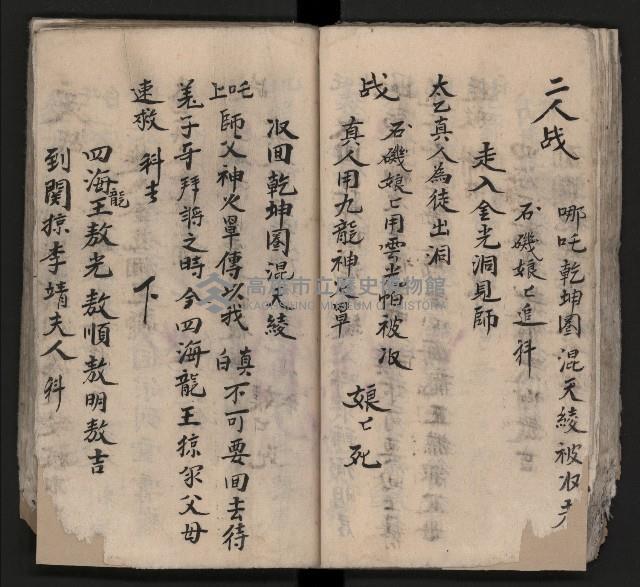 二人战
哪吒乾坤圈混天綾被收去
石磯娘〻追科
走入金光洞見師
太乙真人為徒出洞
石磯娘〻用雲光帕被收
战
真人用九龍神火罩
娘〻死
收回乾坤圈混天綾
吒上
師父神火罩傳以我
真白
不可要回去待
羌子牙拜將之時今四海龍王掠尔父母
速救 科去 下
四海龍王敖光敖順敖明敖吉
到関掠李靖夫人科
高雄市立歷史博物館
KAOHSIUNG MUSEUM OF HISTORY